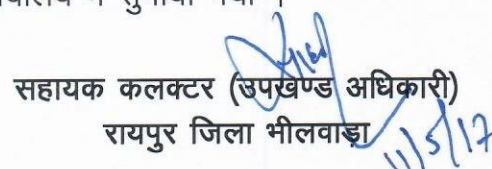 में सुनाया गया ।
सहायक कलक्टर (उपखण्ड अधिकारी)
रायपुर जिला भीलवाड़ा
11/5/17